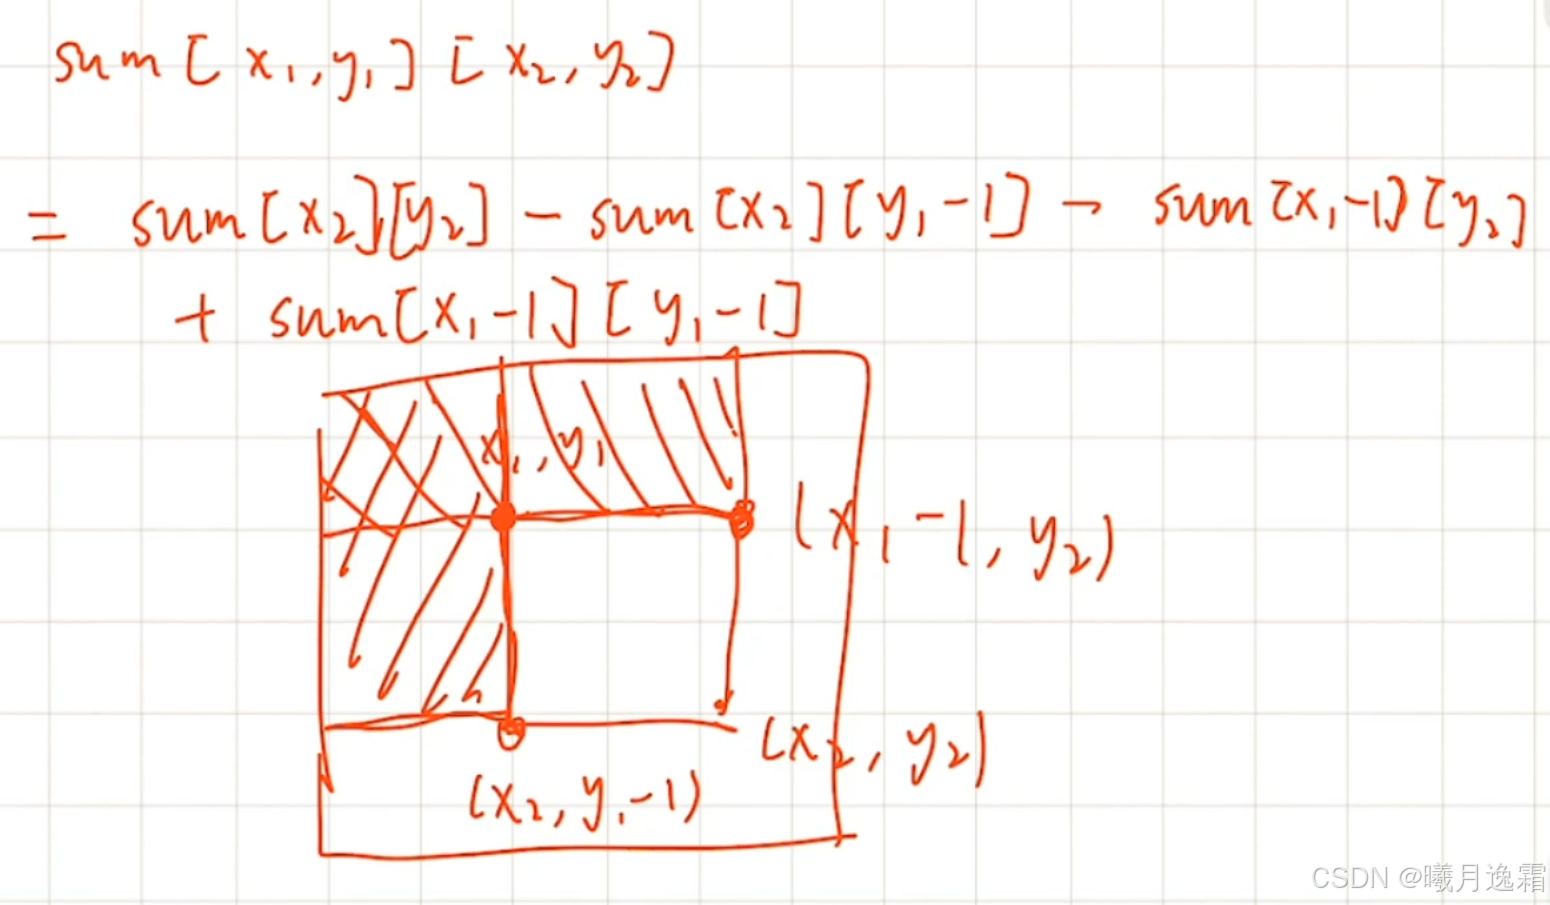 sum[x₁,y₁][x₂,y₂]
= sum[x₂][y₂] - sum[x₂][y₁-1] - sum[x₁-1][y₂]
+ sum[x₁-1][y₁-1]
x₁,y₁
(x₁-1,y₂)
(x₂,y₂)
(x₂,y₁-1)
CSDN @曦月逸霜